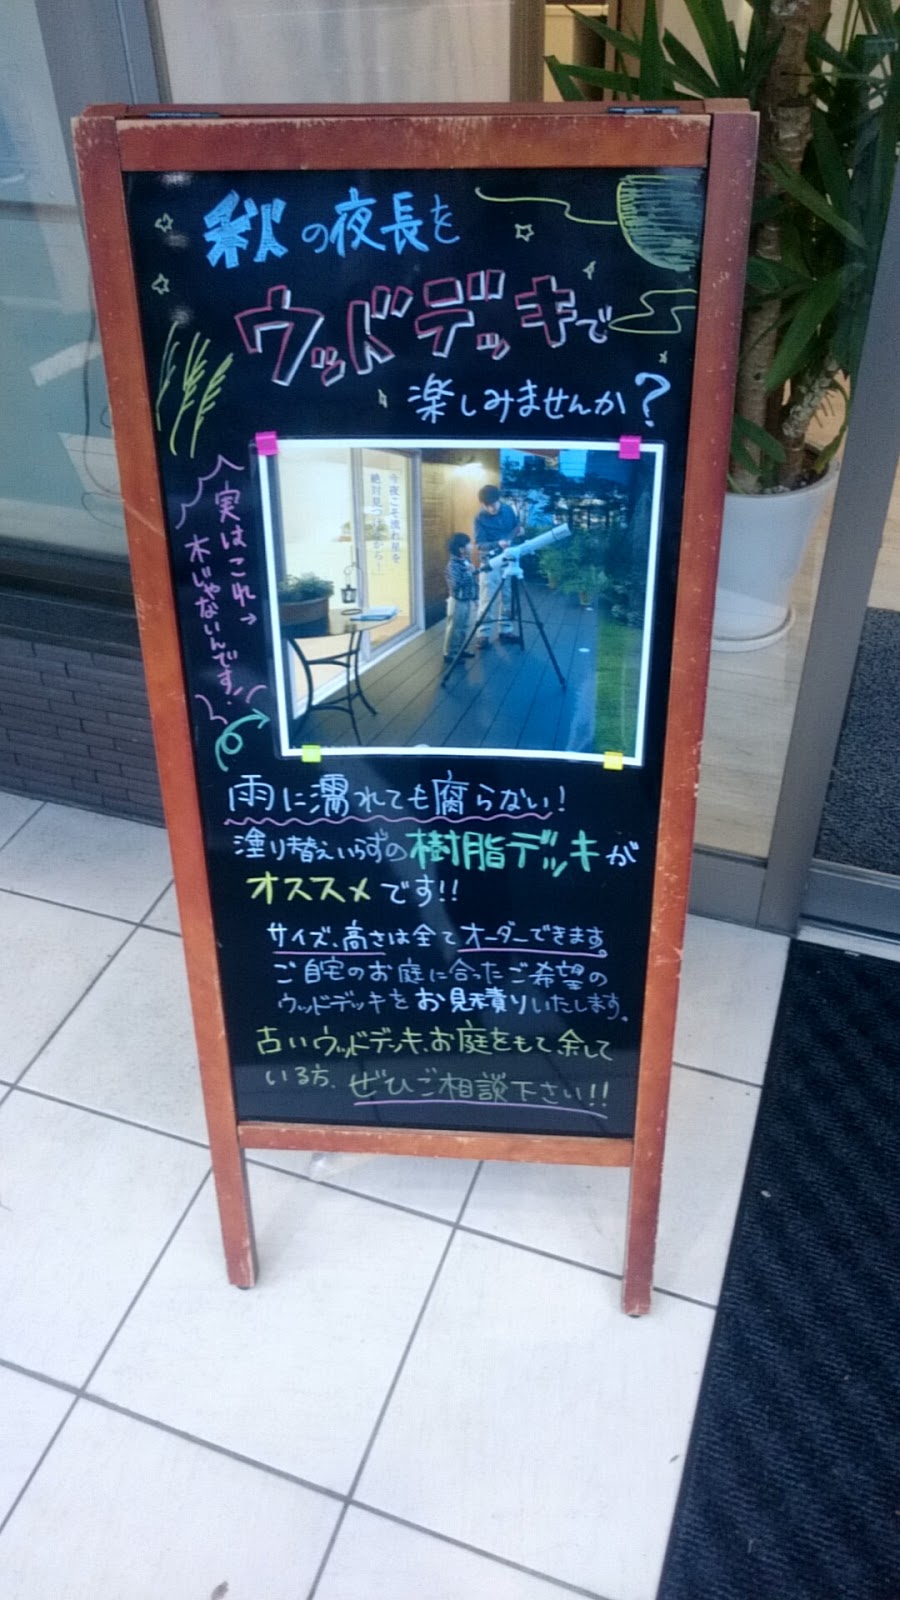 秋の夜長を
ウッドデッキで
楽しみませんか?
今夜こそ流れ星を
絶対見つけるから!」
実はこれ→
木じゃないんです!
雨に濡れても腐らない!
塗り替えいらずの樹脂デッキが
オススメです!!
サイズ、高さは全てオーダーできます。
ご自宅のお庭に合ったご希望の
ウッドデッキをお見積りいたします。
古いウッドデッキ、お庭をもて余して
いる方、ぜひご相談下さい!!